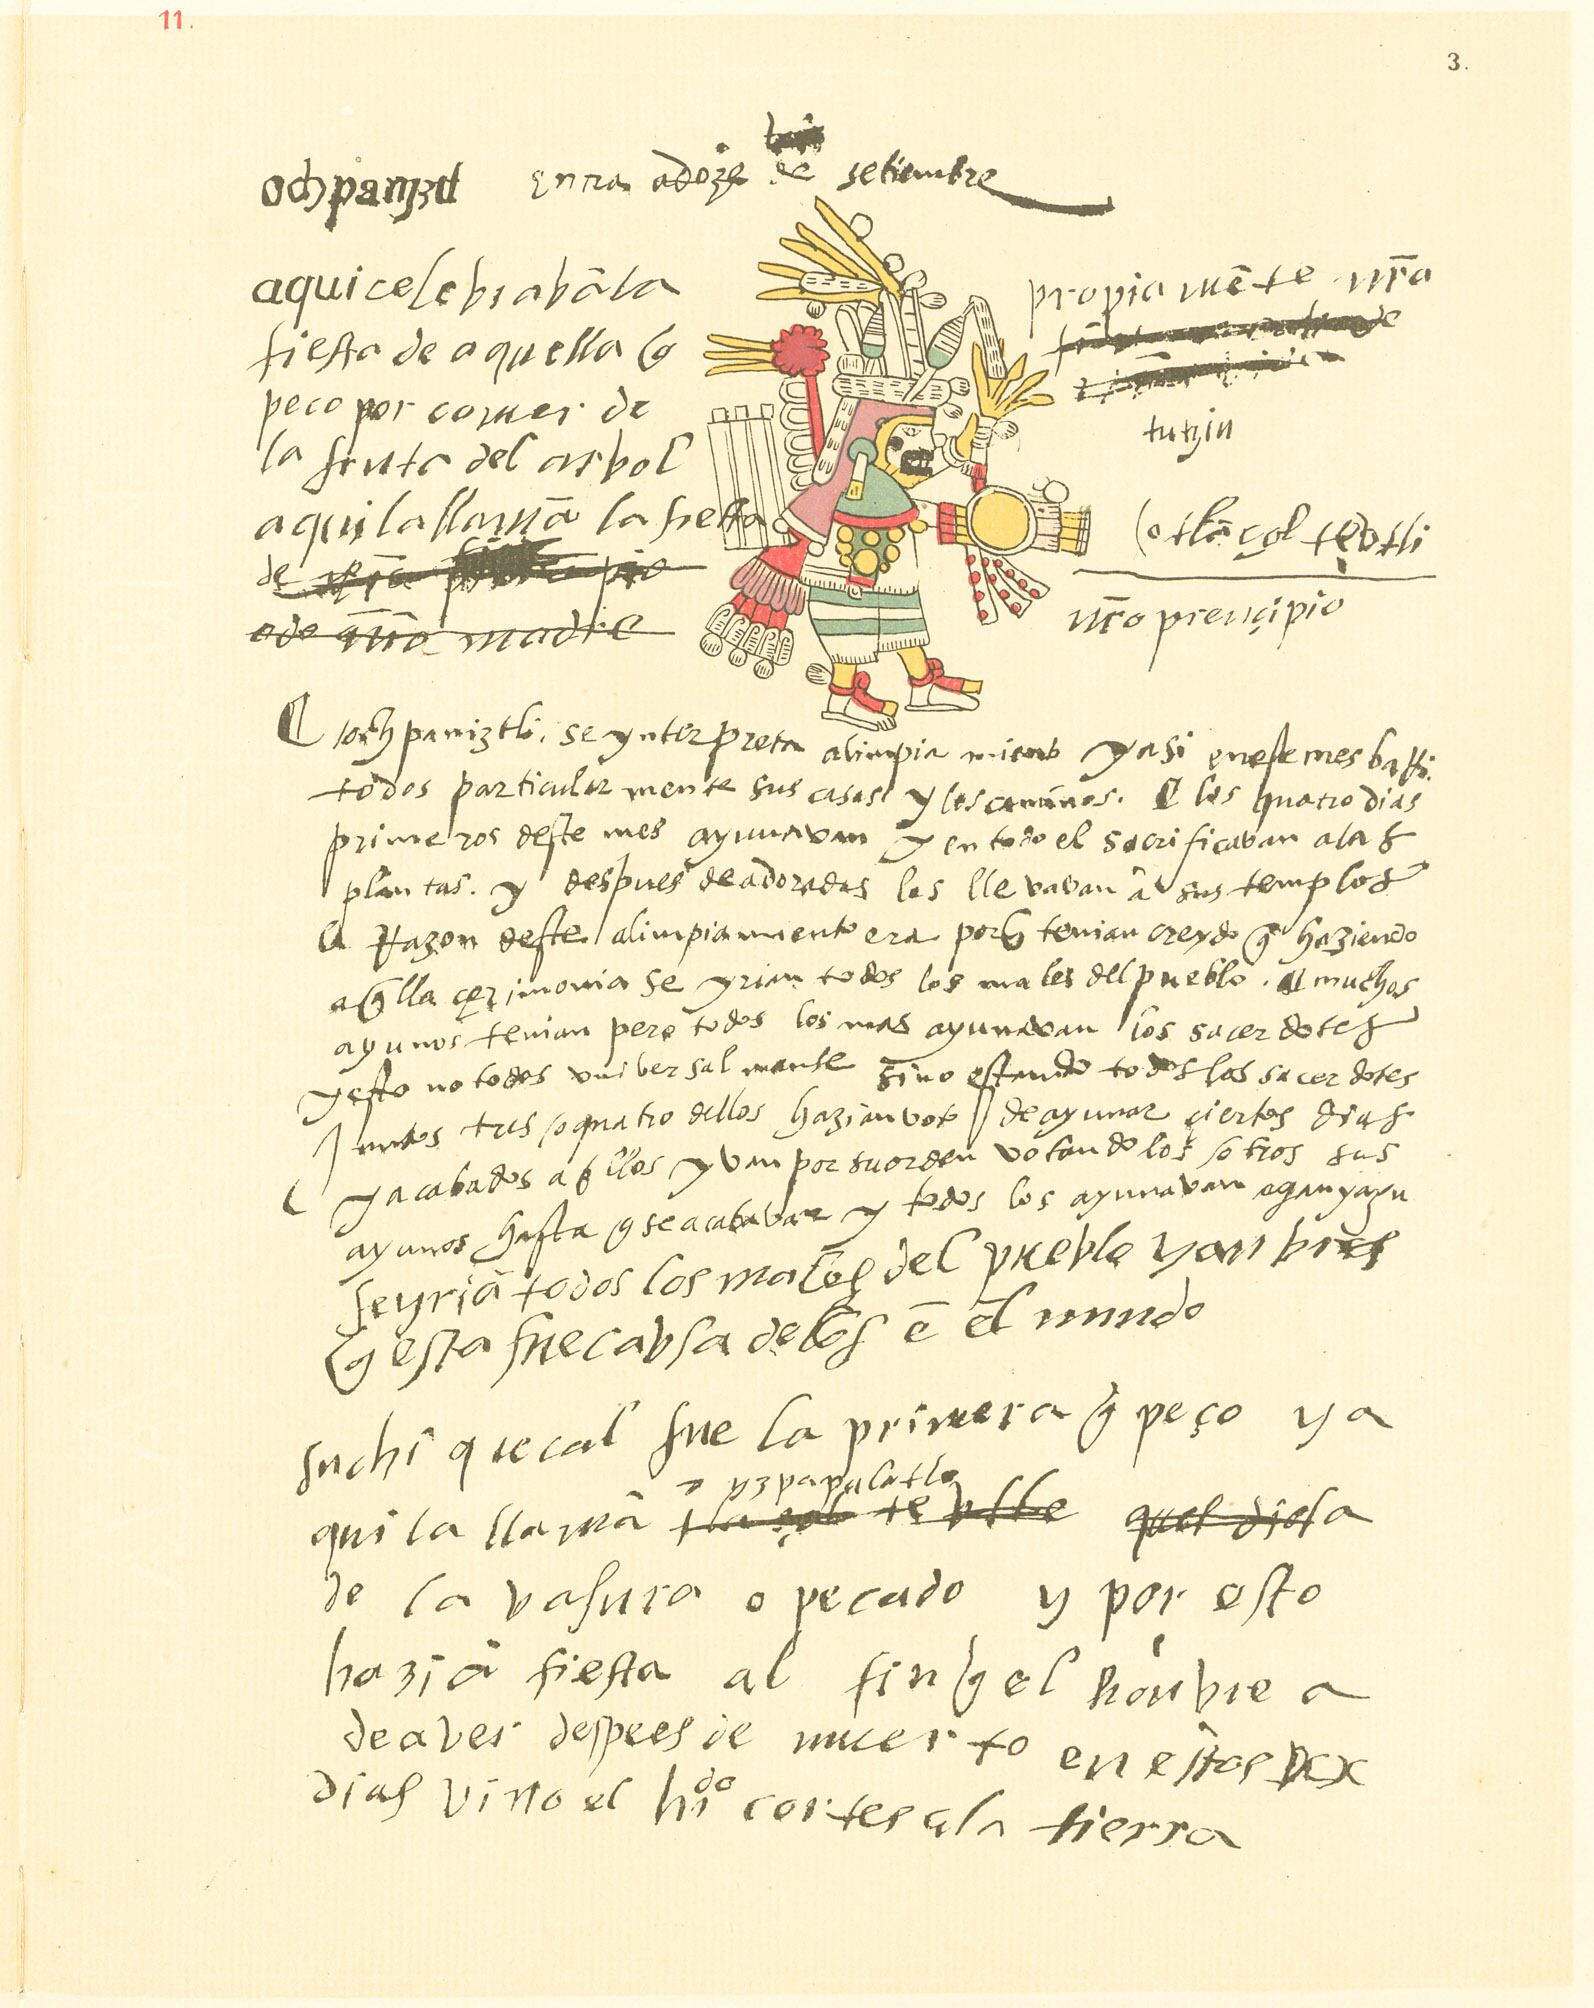 11.
3.
ochpaniztl entra adoze de setiembre
aqui celebrabā la
fiesta de aquella q̄
peco por comer de
la fruta del arbol
aqui la llamā la fiesta
de
o de nr̄o madre
propia mēte nr̄a
tutzin
o tlāçol teotli
nr̄o prençipio
ochpaniztli. se ynterpreta alimpia miento y asi en este mes barriā
todos particular mente sus casas y los caminos. los quatro dias
primeros deste mes ayunavan y en todo el sacrificavan a las
plantas. y despues de adoradas las llevavan a sus templos
la Razon deste alimpiamiento era porq̄ tenian creydo q̄ haziendo
aq̄lla çerimonia se yrian todos los males del pueblo. muchos
ayunos tenian pero todos los mas ayunavan los sacerdotes
y esto no todos universal mente sino estando todos los sacerdotes
Juntos tres o quatro dellos hazian voto de ayunar çiertos dias
y acabados aq̄llos yvan por su orden votando los otros sus
ayunos hasta q̄ se acabavan y todos los ayunavan
se yriā todos los males del pueblo y an bies
q̄ esta fue cabsa delos ē el mundo
suchi quecal fue la primera q̄ peço y a
yzpapalotle
qui la llamā tlaçol teutle quel diosa
de la vasura o pecado y por esto
haziā fiesta al fin q̄ el honbre a
de aver despues de muerto en estos xx
dias vino el hr̄do cortes a la tierra